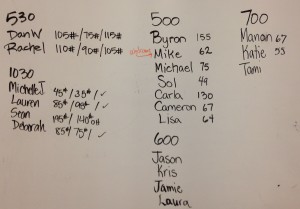 530
Dan W 105#/75#/115#
Rachel 110#/90#/105#
1030
Michelle J 45#/35#/✓
Lauren 85#/95#/✓
Sean 195#/140#
Deborah 85#/75#/✓
500
Byron 155
Mike 62
Michael 75
Sol 49
Carla 130
Cameron 67
Lisa 64
600
Jason
Kris
Jamie
Laura
700
Manan 67
Katie 55
Tami